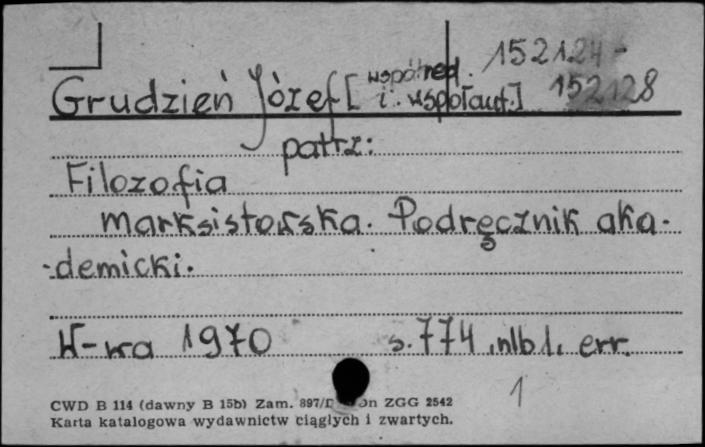 152124-
Grudzień Józef [współred. i współaut.] 152128
patrz:
Filozofia
marksistowska. Podręcznik aka-
-demicki.
W-wa 1970 s. 774, nlb 1, err.
1
CWD B 114 (dawny B 15b) Zam. 897/D ZGG 2542
Karta katalogowa wydawnictw ciągłych i zwartych.